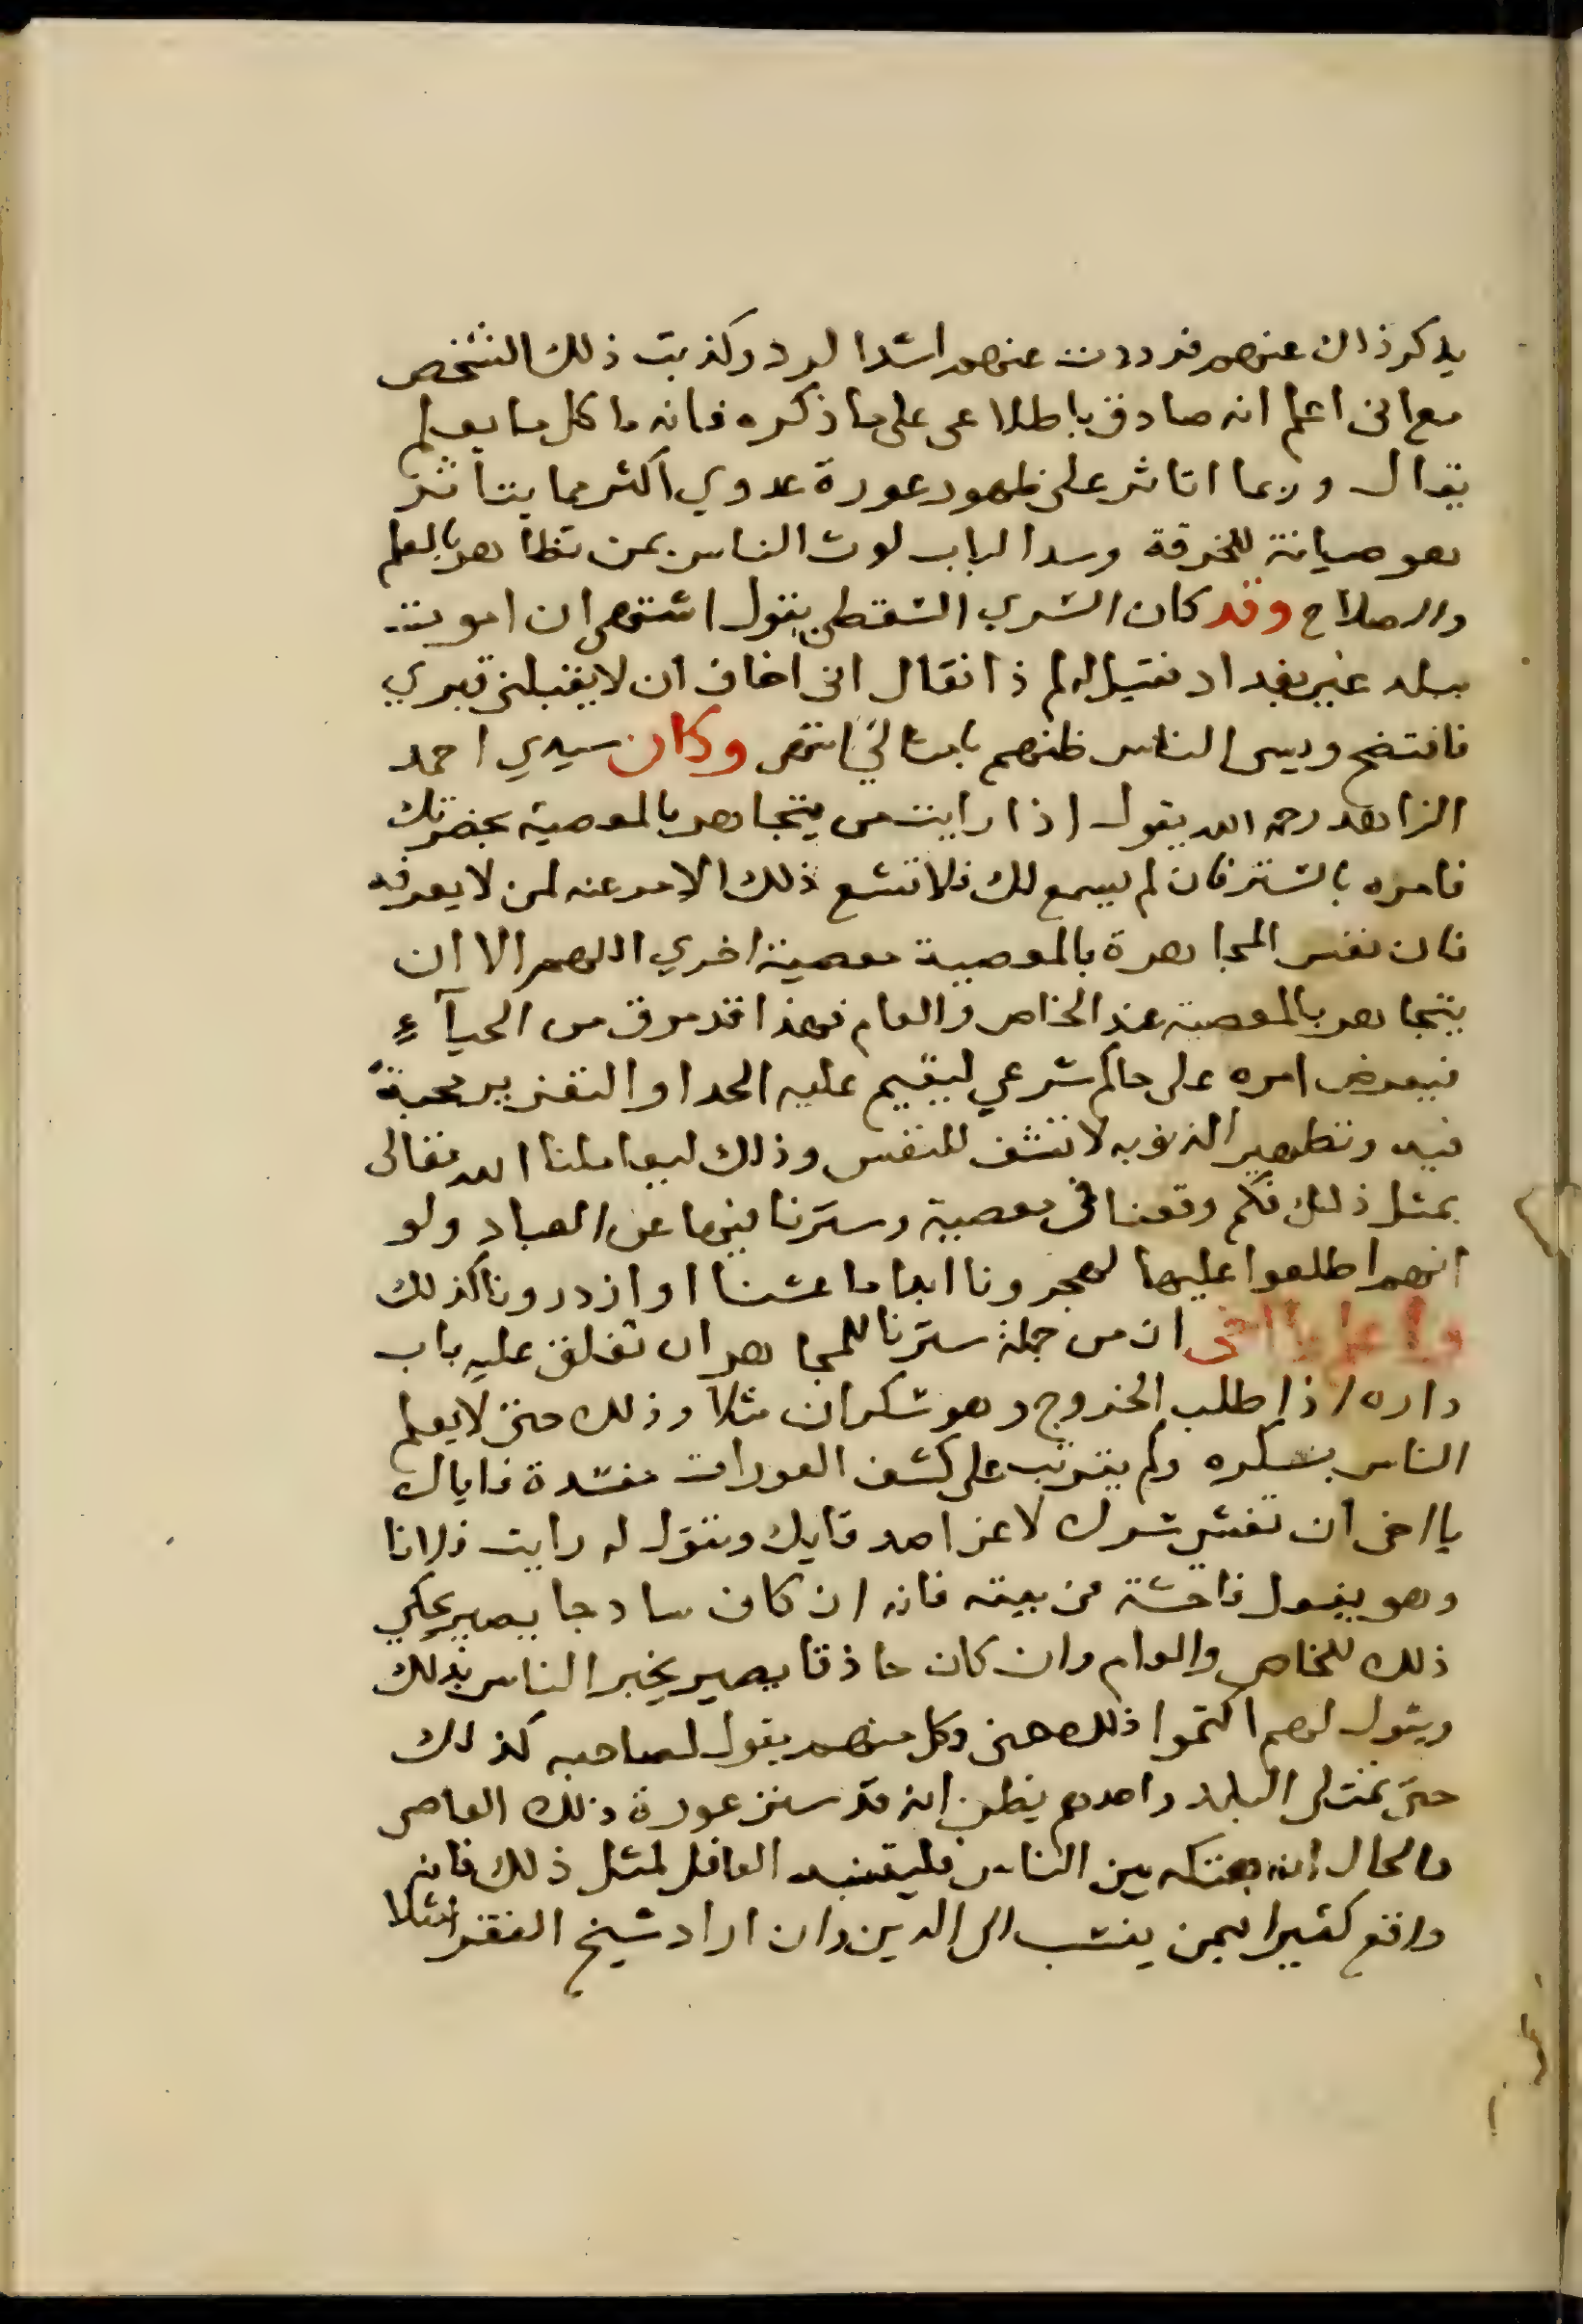 يذكر ذلك عنهم فرددت عنهم اشد الرد وكذبت ذلك الشخص
مع انى اعلم انه صادق باطلاعى على ما ذكره فانه ما كل ما يعلم
يقال وربما اتاثر على ظهور عورة عدوي اكثر مما يتاثر
هو صيانة للخرقة وسدا لباب لوث الناس بمن تظاهر بالعلم
والصلاح وقد كان السري السقطي يقول اشتهى ان اموت
ببلد غير بغداد فقيل له لم ذا فقال انى اخاف ان لا يقبلنى قبري
فافتضح ويسى الناس ظنهم بامثالي انتهى وكان سيدي احمد
الزاهد رحمه الله يقول اذا رايت من يتجاهر بالمعصية بحضرتك
فامره بالستر فان لم يسمع لك فلا تشع ذلك الامر عنه لمن لا يعرفه
فان نفس المجاهرة بالمعصية معصية اخري اللهم الا ان
يتجاهر بالمعصية عند الخاص والعام فهذا قد مرق من الحيآء
فيعرض امره على حاكم شرعي ليقيم عليه الحد او التعزير محبةً
فيه وتطهير الذنوبه لا تشف للنفس وذلك ليعاملنا الله تعالى
بمثل ذلك فكم وقعنا فى معصية وسترنا فيها عن العباد ولو
انهم اطلعوا عليها لهجرونا ابدا ما عشنا او ازدرونا كذلك
واعلم يا اخى ان من جملة سترنا للمجاهر ان تغلق عليه باب
داره اذا طلب الخروج وهو سكران مثلا وذلك حتى لا يعلم
الناس بسكره ولم يترتب على كشف العورات مفسدة فاياك
يا اخى ان تفشى سرك لاعز اصدقايك وتقول له رايت فلانا
وهو يفعل فاحشة فى بيته فانه ان كان ساذجا يصير يحكي
ذلك للخاص والعام وان كان حاذقا يصير يخبر الناس بذلك
ويقول لهم اكتموا ذلك عنى وكل منهم يقول لصاحبه كذلك
حتى تمتلى البلد واحدهم يظن انه قد ستر عورة ذلك العاصى
والحال انه هتكه بين الناس فليتنبه العاقل لمثل ذلك فانه
واقع كثيرا ممن ينتسب الى الدين وان اراد شيخ الفقرا مثلا